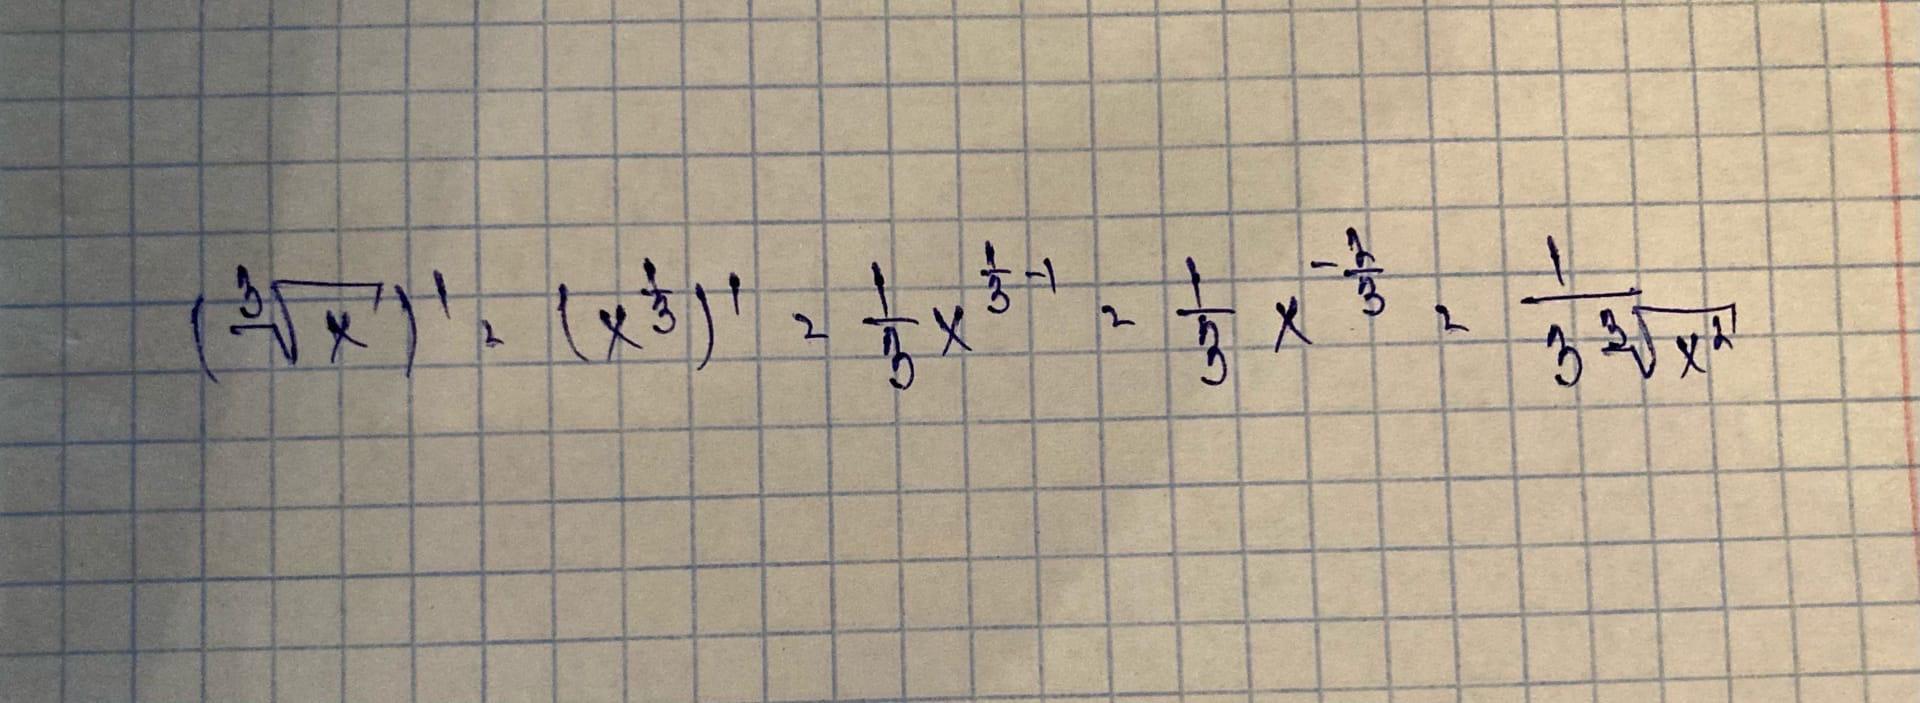 (∛x)' = (x^{1/3})' = 1/3 x^{1/3 - 1} = 1/3 x^{-2/3} = 1/(3∛x²)